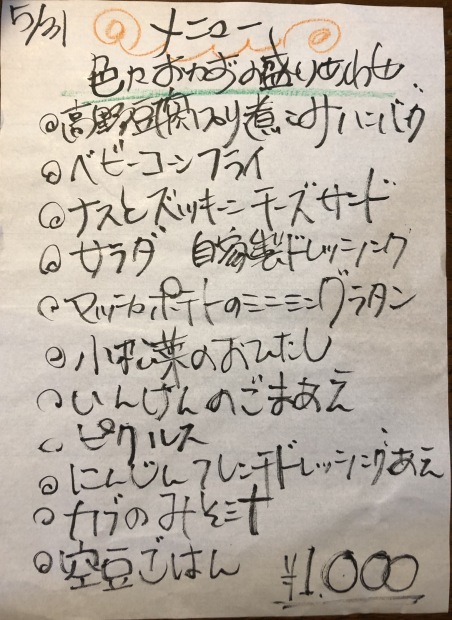 5/31 メニュー
色々おかずの盛りあわせ
◎高野豆腐入り煮こみハンバグ
◎ベビーコーンフライ
◎ナスとズッキーニチーズサンド
◎サラダ 自家製ドレッシング
◎マッシュポテトのミニミニグラタン
◎小松菜のおひたし
◎いんげんのごまあえ
ピクルス
◎にんじんフレンチドレッシングあえ
◎カブのみそ汁
◎空豆ごはん ¥1.000